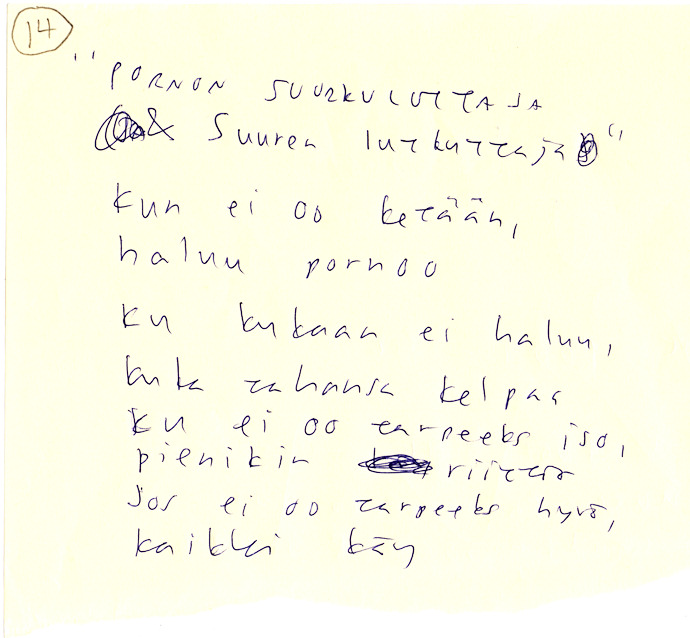 14
"PORNON SUURKULUTTAJA
& Suuren luukuttaja"
kun ei oo ketään,
haluu pornoo
ku kukaan ei haluu,
kuka tahansa kelpaa
ku ei oo tarpeeks iso,
pienikin riittää
jos ei oo tarpeeks hyvä,
kaikki käy